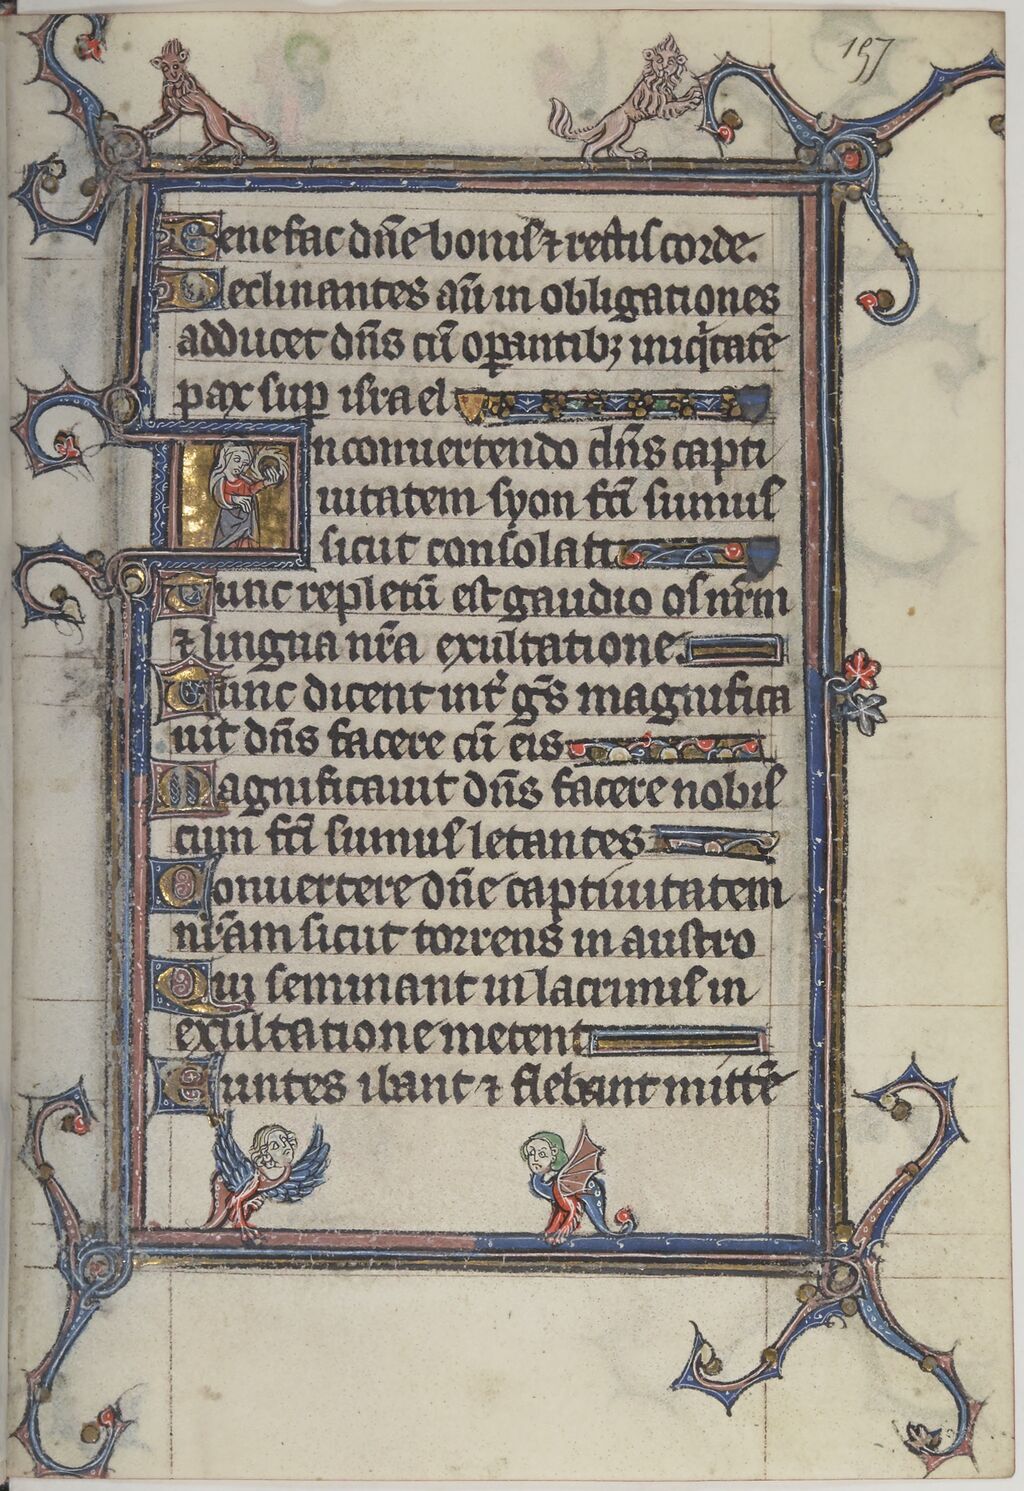 197
Benefac dn̄e bonis ⁊ rectis corde.
Declinantes aū in obligationes
adducet dn̄s cū oꝑantibꝫ iniqͥtatē
pax suꝑ israel
In conuertendo dn̄s capti
uitatem syon fc̄i sumus
sicut consolati
Tunc repletū est gaudio os nr̄m
⁊ lingua nr̄a exultatione.
Tunc dicent int̄ gn̄s magnifica
uit dn̄s facere cū eis
Magnificauit dn̄s facere nobis
cum fc̄i sumus letantes
Conuertere dn̄e captiuitatem
nr̄am sicut torrens in austro
Qui seminant in lacrimis in
exultatione metent
Euntes ibant ⁊ flebant mittē